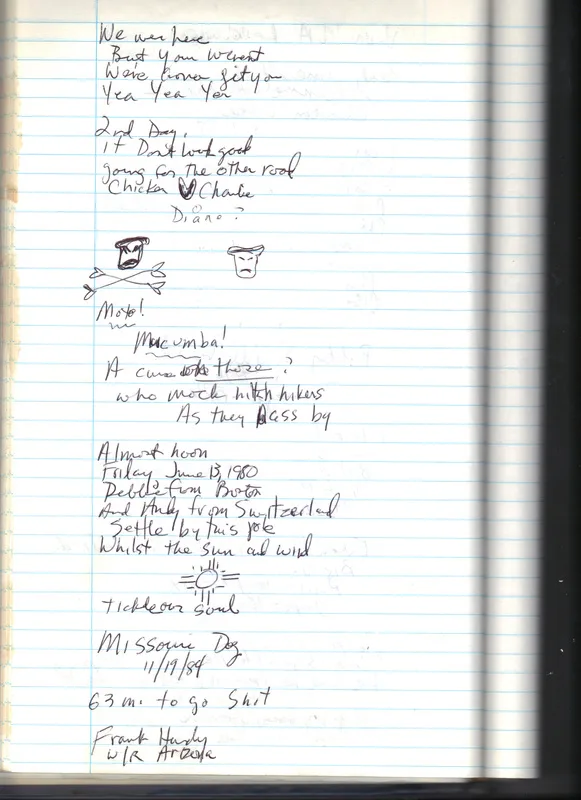 We wer here
But you wernt
We're gonna git you
Yea Yea Yea
2nd Day.
it Dont look good
going for the other road
Chicken Charlie
Diane?
Mojo!
Macumba!
A curse those?
who mock hitch hikers
As they pass by
Almost noon
Friday June 13, 1980
Debbie from Boston
And Andy from Switzerland
Settle by this pole
Whilst the sun and wind
tickle our souls
Missouri Dog
11/19/84
63 mi. to go Shit
Frank Hardy
W/R Arizona